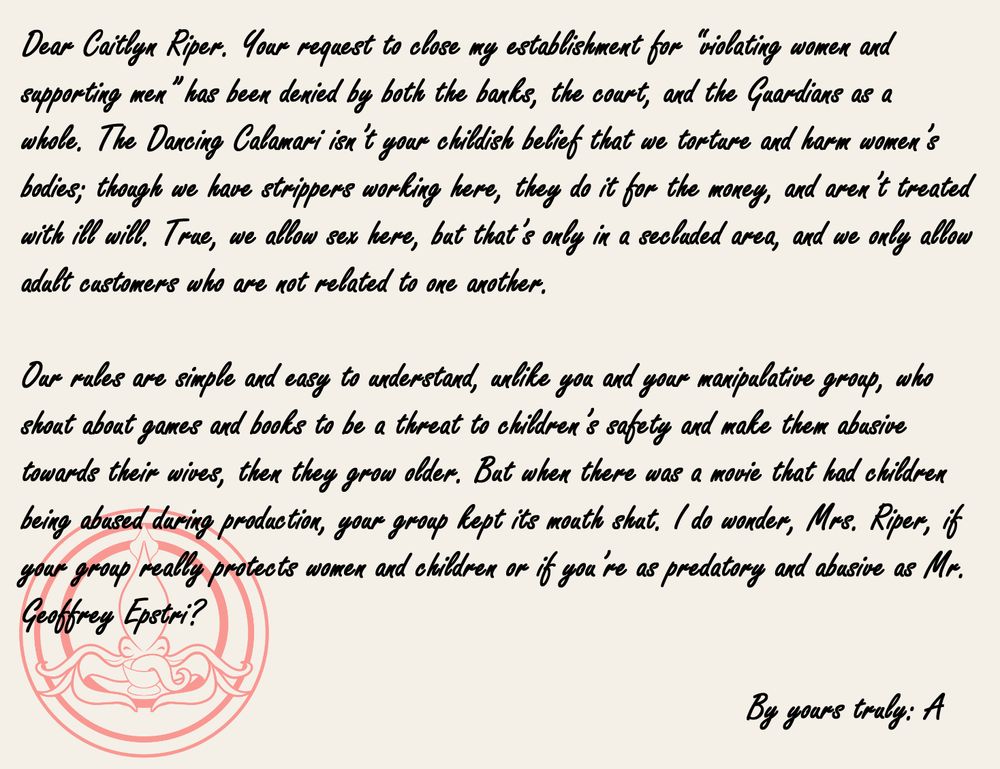 Dear Caitlyn Riper. Your request to close my establishment for "violating women and
supporting men" has been denied by both the banks, the court, and the Guardians as a
whole. The Dancing Calamari isn't your childish belief that we torture and harm women's
bodies; though we have strippers working here, they do it for the money, and aren't treated
with ill will. True, we allow sex here, but that's only in a secluded area, and we only allow
adult customers who are not related to one another.
Our rules are simple and easy to understand, unlike you and your manipulative group, who
shout about games and books to be a threat to children's safety and make them abusive
towards their wives, then they grow older. But when there was a movie that had children
being abused during production, your group kept its mouth shut. I do wonder, Mrs. Riper, if
your group really protects women and children or if you're as predatory and abusive as Mr.
Geoffrey Epstri?
By yours truly: A